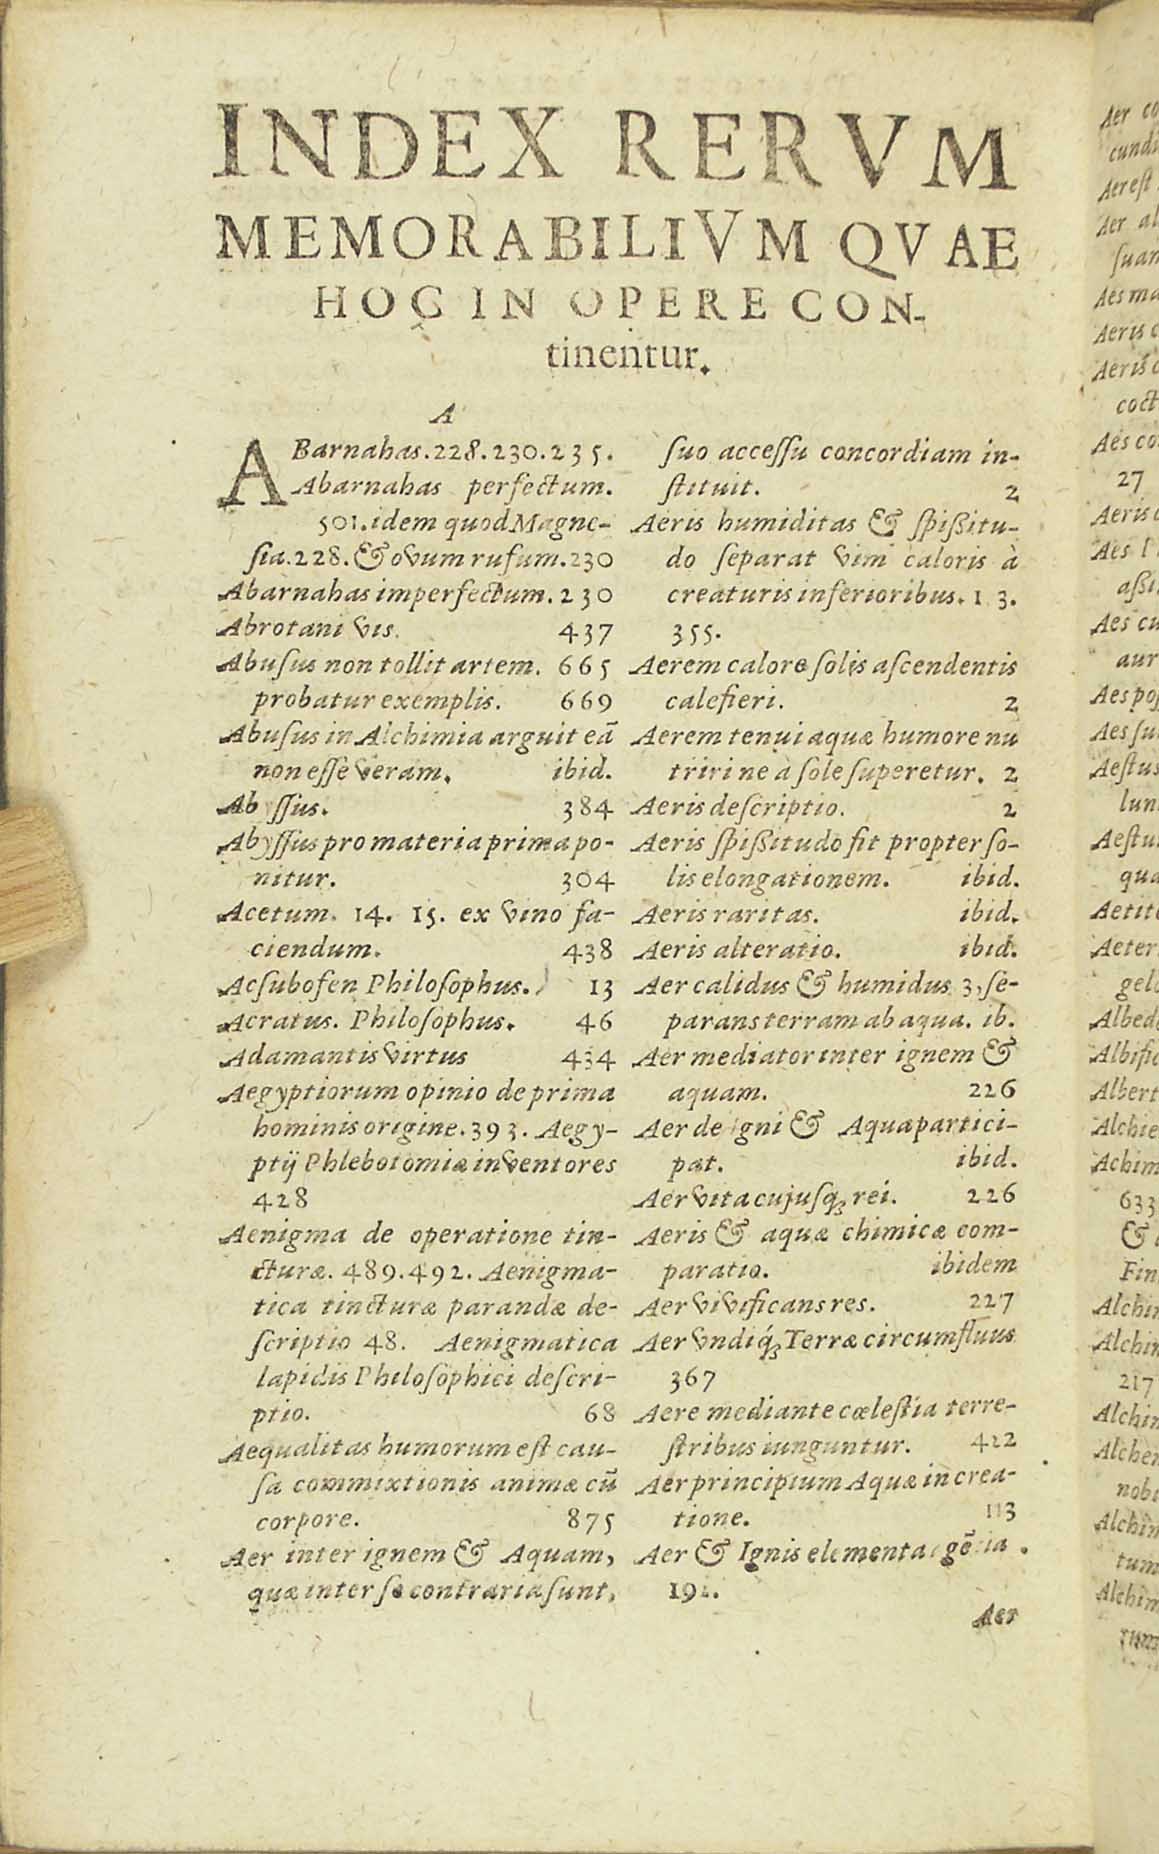 INDEX RERVM
MEMORABILIVM QVAE
HOC IN OPERE CON-
tinentur.
A
ABarnahas.228.230.235.
Abarnahas perfectum.
501.idem quod Magne-
sia.228. & ovum rufum.230
Abarnahas imperfectum.230
Abrotani vis. 437
Abusus non tollit artem. 665
probatur exemplis. 669
Abusus in Alchimia arguit eā
non esse veram. ibid.
Abyssus. 384
Abyssus pro materia prima po-
nitur. 304
Acetum. 14. 15. ex vino fa-
ciendum. 438
Acsubofen Philosophus. 13
Acratus. Philosophus. 46
Adamantis virtus 434
Aegyptiorum opinio de prima
hominis origine.393. Aegy-
ptij Phlebotomiæ inventores
428
Aenigma de operatione tin-
cturæ. 489.492. Aenigma-
tica tincturæ parandæ de-
scriptio 48. Aenigmatica
lapidis Philosophici descri-
ptio. 68
Aequalitas humorum est cau-
sa commixtionis animæ cū
corpore. 875
Aer inter ignem & Aquam,
quæ inter se contraria sunt,
suo accessu concordiam in-
stituit. 2
Aeris humiditas & spissitu-
do separat vim caloris à
creaturis inferioribus. 13.
355.
Aerem calore solis ascendentis
calefieri. 2
Aerem tenui aquæ humore nu
triri ne à sole superetur. 2
Aeris descriptio. 2
Aeris spissitudo fit propter so-
lis elongationem. ibid.
Aeris raritas. ibid.
Aeris alteratio. ibid.
Aer calidus & humidus 3, se-
parans terram ab aqua. ib.
Aer mediator inter ignem &
aquam. 226
Aer de igni & Aqua partici-
pat. ibid.
Aer vita cujusq; rei. 226
Aeris & aquæ chimicæ com-
paratio. ibidem
Aer vivificans res. 227
Aer vndiq́; Terræ circumfluus
367
Aere mediante cœlestia terre-
stribus iunguntur. 422
Aer principium Aquæ in crea-
tione. 113
Aer & Ignis elementa agētia.
Aer